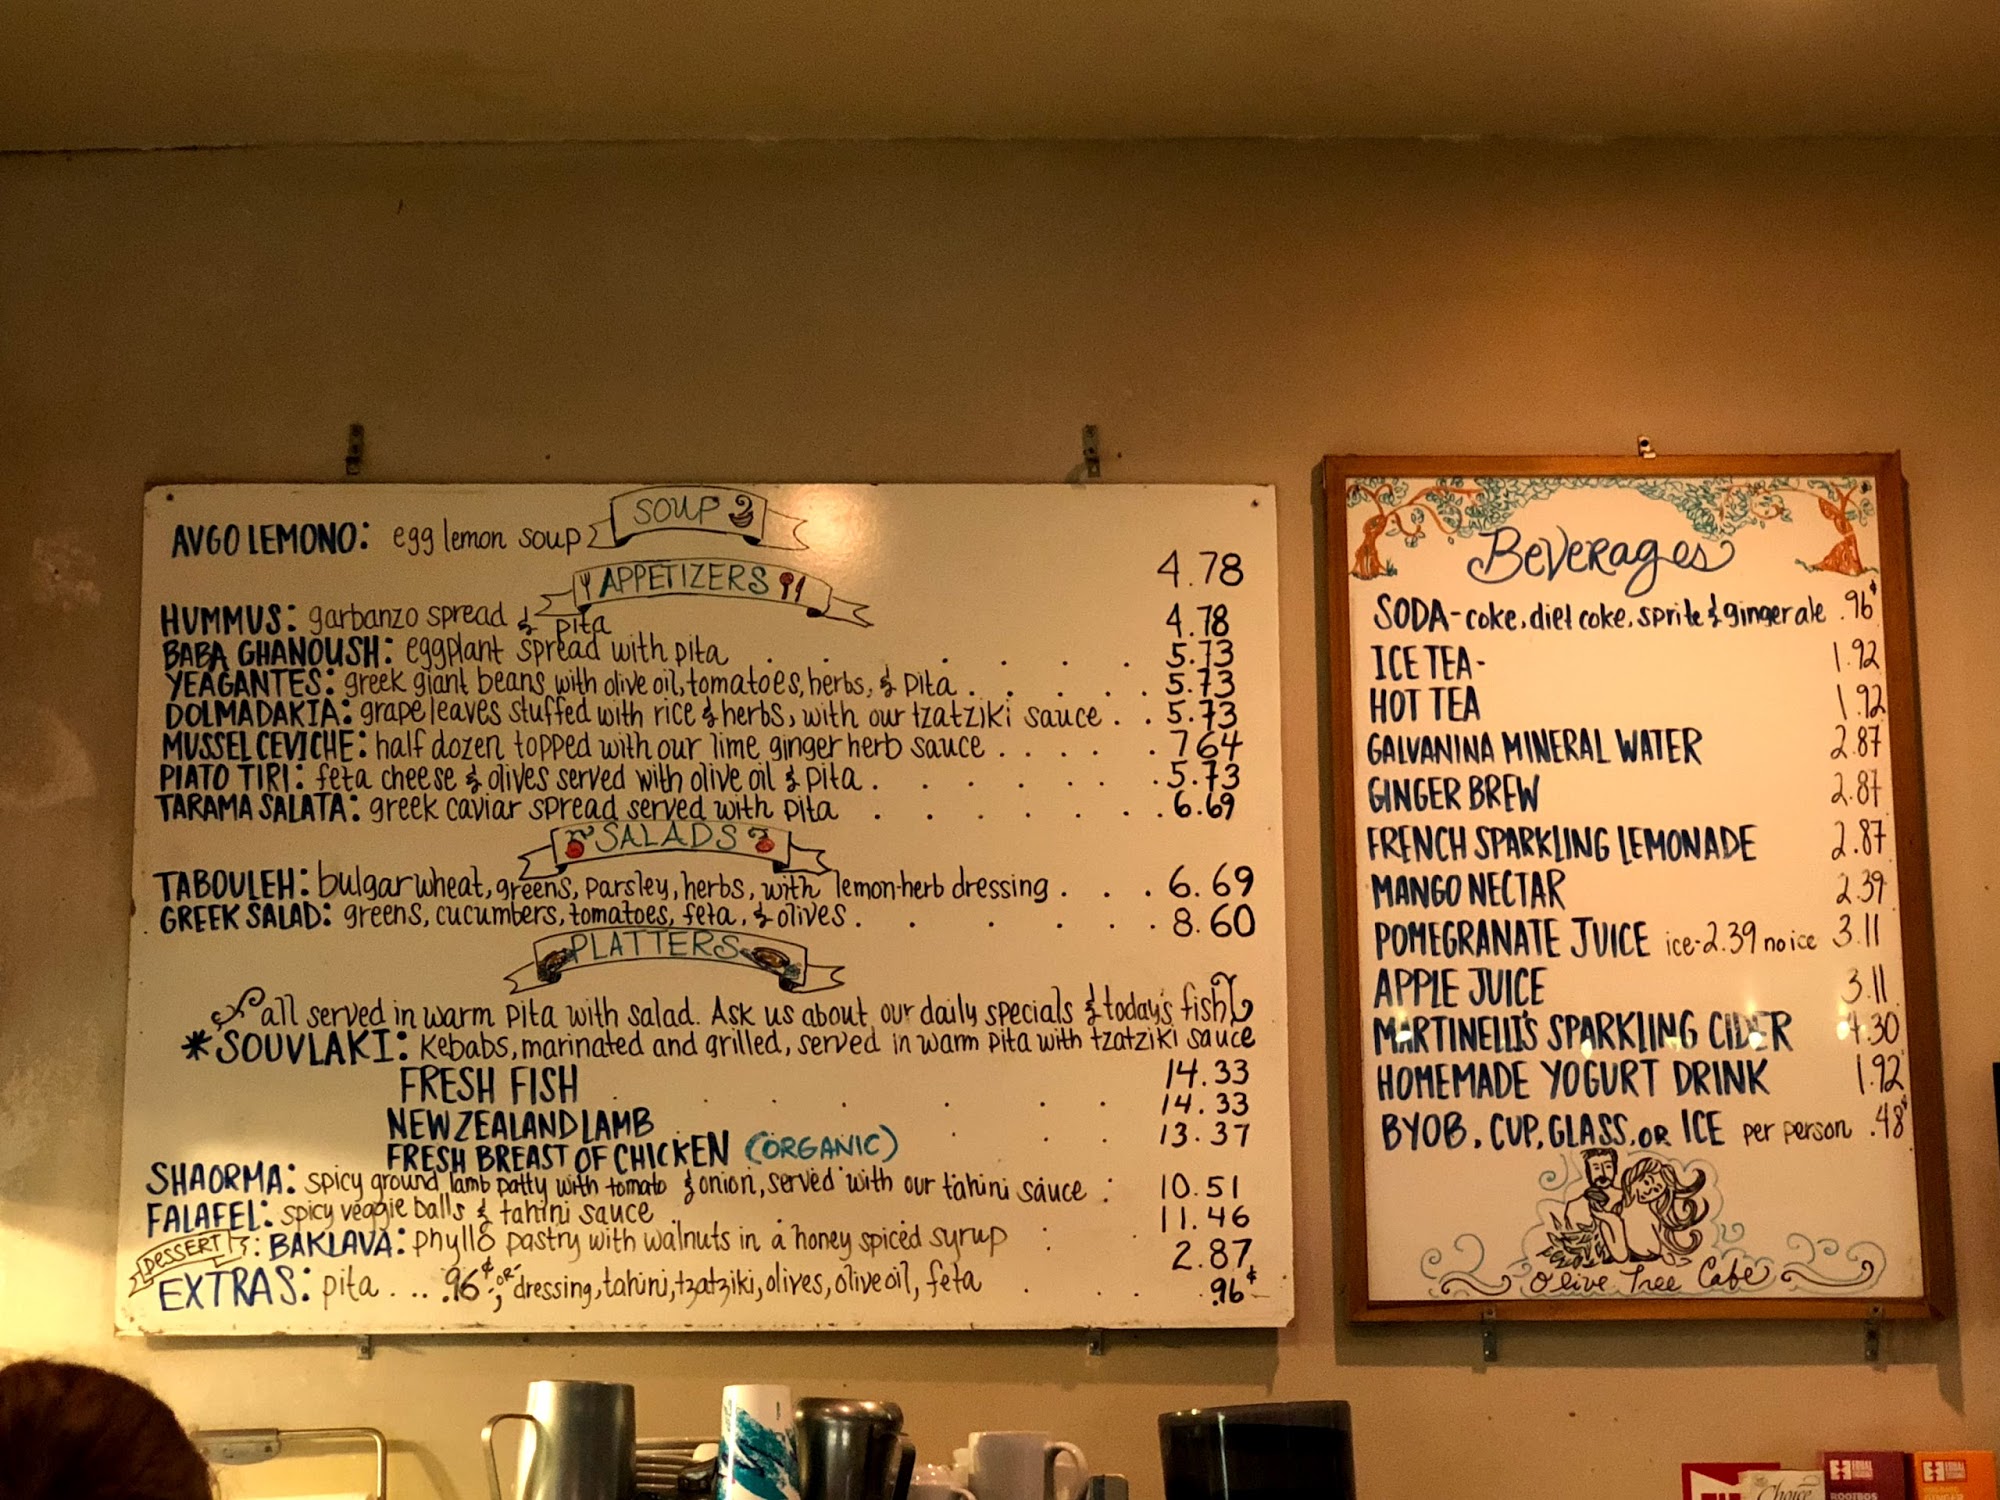 SOUP
AVGO LEMONO: egg lemon soup 4.78
APPETIZERS
HUMMUS: garbanzo spread & pita 4.78
BABA GHANOUSH: eggplant spread with pita . . . . . 5.73
YEAGANTES: greek giant beans with olive oil, tomatoes, herbs, & pita . . . . . 5.73
DOLMADAKIA: grape leaves stuffed with rice & herbs, with our tzatziki sauce . . 5.73
MUSSEL CEVICHE: half dozen topped with our lime ginger herb sauce . . . . . 7.64
PIATO TIRI: feta cheese & olives served with olive oil & pita . . . . . . 5.73
TARAMA SALATA: greek caviar spread served with pita . . . . . . . 6.69
SALADS
TABOULEH: bulgar wheat, greens, parsley, herbs, with lemon-herb dressing . . . 6.69
GREEK SALAD: greens, cucumbers, tomatoes, feta, & olives . . . . . . 8.60
PLATTERS
all served in warm pita with salad. Ask us about our daily specials & today's fish
*SOUVLAKI: Kebabs, marinated and grilled, served in warm pita with tzatziki sauce
FRESH FISH . . . . . . 14.33
NEW ZEALAND LAMB . . . 14.33
FRESH BREAST OF CHICKEN (ORGANIC) . . . 13.37
SHAORMA: spicy ground lamb patty with tomato & onion, served with our tahini sauce : 10.51
FALAFEL: spicy veggie balls & tahini sauce . . . . 11.46
DESSERT: BAKLAVA: phyllo pastry with walnuts in a honey spiced syrup : 2.87
EXTRAS: pita . . .. .96¢, or dressing, tahini, tzatziki, olives, olive oil, feta . . . .96¢
Beverages
SODA - coke, diet coke, sprite & ginger ale .96¢
ICE TEA - 1.92
HOT TEA 1.92
GALVANINA MINERAL WATER 2.87
GINGER BREW 2.87
FRENCH SPARKLING LEMONADE 2.87
MANGO NECTAR 2.39
POMEGRANATE JUICE ice-2.39 no ice 3.11
APPLE JUICE 3.11
MARTINELLI'S SPARKLING CIDER 4.30
HOMEMADE YOGURT DRINK 1.92
BYOB, CUP, GLASS, OR ICE per person .48¢
Olive Tree Cafe
Choice
EQUAL
ROOIBOS
EQUAL
GINGER